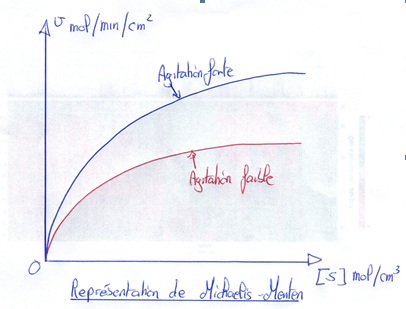 V mol/min/cm²
Agitation forte
Agitation faible
O
[S] mol/cm³
Représentation de Michaelis-Menten